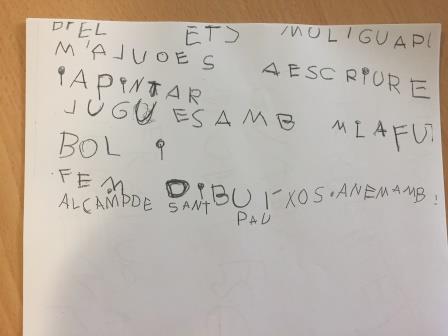 BIEL ETS MOLT GUAPI
M'AJUDES A ESCRIURE
I A PINTAR
JUGUES AMB MI A FUT
BOL I
FEM DIBUIXOS. ANEM AMB
AL CAMP DE SANT
PAU